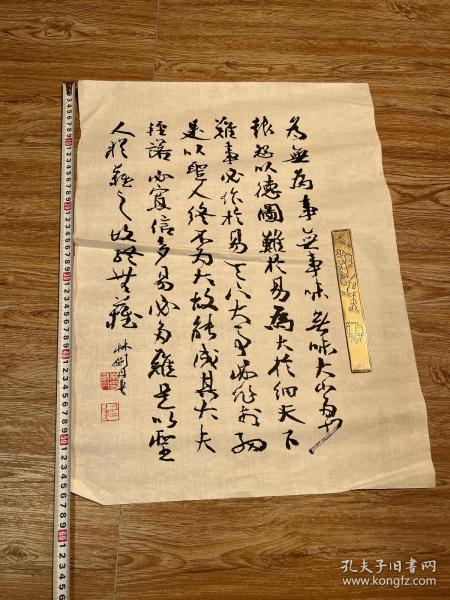 為無為事無事味無味大小多少
報怨以德圖難於易為大於細天下
難事必作於易天下大事必作於細
是以聖人終不為大故能成其大夫
輕諾必寡信多易必多難是以聖
人猶難之故終無難
孔夫子旧书网
www.kongfz.com